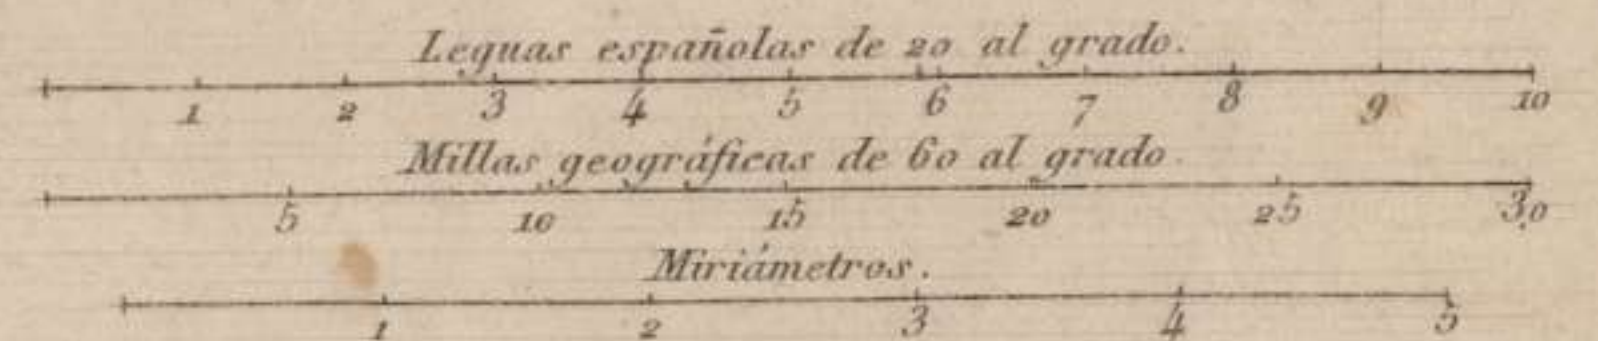 Leguas españolas de 20 al grado.
1 2 3 4 5 6 7 8 9 10
Millas geográficas de 60 al grado.
5 10 15 20 25 30
Miriámetros.
1 2 3 4 5